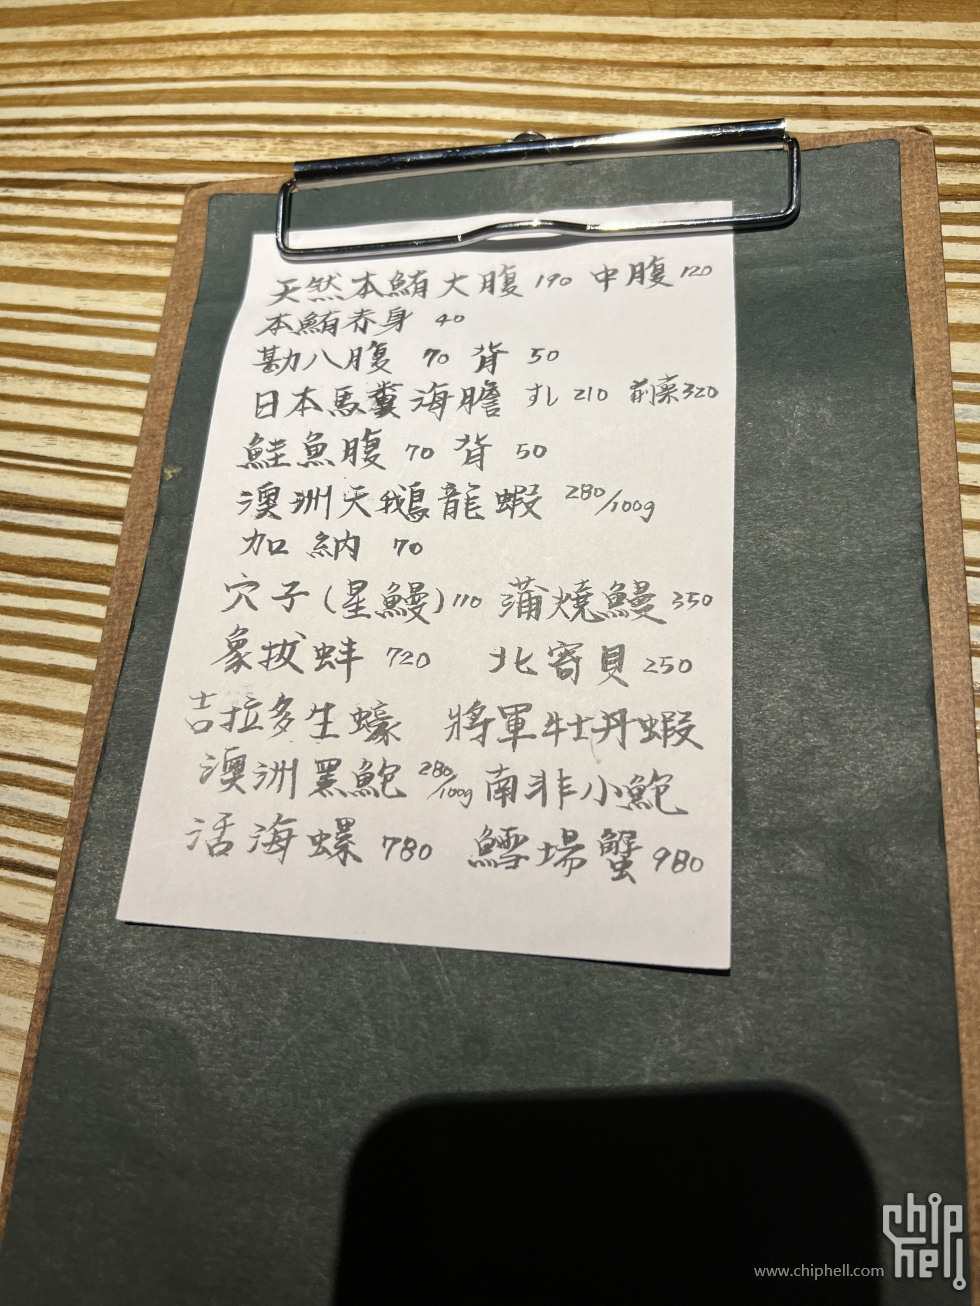 天然本鮪大腹190 中腹120
本鮪赤身 40
勘八腹 70 背 50
日本馬糞海膽 すし 210 前菜320
鮭魚腹 70 背 50
澳洲天鵝龍蝦 280/100g
加納 70
穴子(星鰻)110 蒲燒鰻350
象拔蚌 720 北寄貝250
吉拉多生蠔 將軍牡丹蝦
澳洲黑鮑 280/100g 南非小鮑
活海螺 780 鱈場蟹980
chip
hell
www.chiphell.com